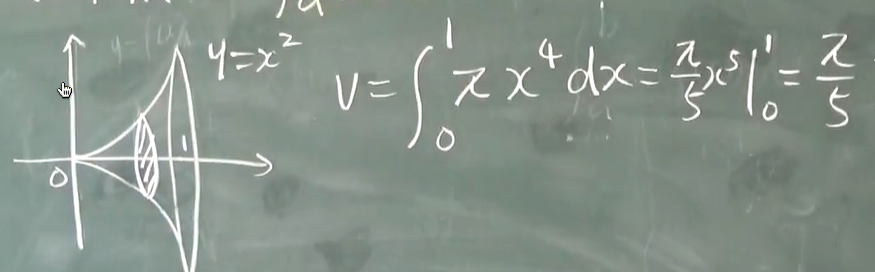 y=x²
V=∫₀¹ πx⁴dx=π/5 x⁵|₀¹=π/5
1
0